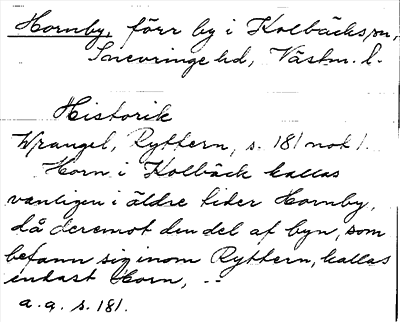 Hornby, förr by i Kolbäcks sn,
Snevringe hd, Västm. l.
Historik
Wrangel, Ryttern, s. 181 not 1.
Horn i Kolbäck kallas
vanligen i äldre tider Hornby,
då deremot den del af byn, som
befann sig inom Ryttern, kallas
endast Horn, --
a. a. s. 181.